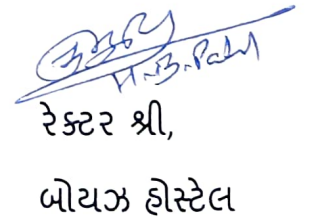 H.B.Patel
રેક્ટર શ્રી,
બોયઝ હોસ્ટેલ